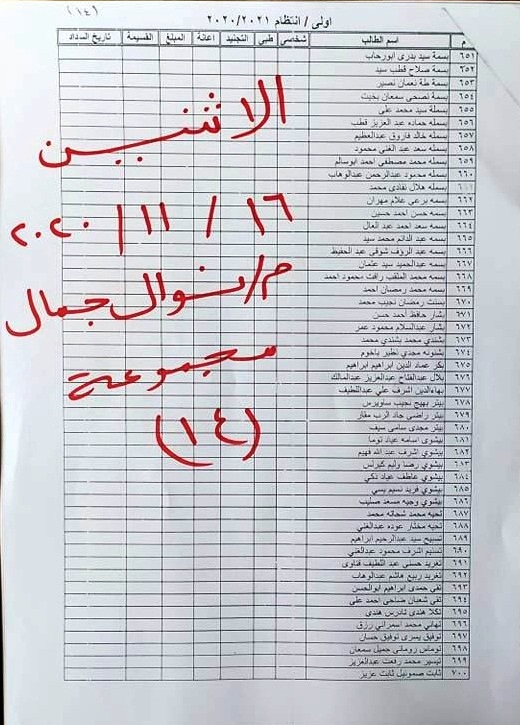 (١٤)
اولى / انتظام ٢٠٢٠/٢٠٢١
م اسم الطالب شخاصى طبى التجنيد اعانة المبلغ القسيمة تاريخ السداد
٦٥١ بسمة سيد بدرى ابورحاب
٦٥٢ بسمة صلاح قطب سيد
٦٥٣ بسمة طة نعمان نصير
٦٥٤ بسمة نصحى سمعان بخيت
٦٥٥ بسملة سيد محمد على
٦٥٦ بسمله حماده عبد العزيز قطب
٦٥٧ بسمله خالد فاروق عبدالعظيم
٦٥٨ بسمله سعد عبد الغني محمود
٦٥٩ بسمله محمد مصطفي احمد ابوسالم
٦٦٠ بسمله محمود عبدالرحمن عبدالوهاب
٦٦١ بسمله هلال نفادى محمد
٦٦٢ بسمه برعى علام مهران
٦٦٣ بسمه حسن احمد حسين
٦٦٤ بسمه سعد احمد عبد العال
٦٦٥ بسمه عبد الدائم محمد سيد
٦٦٦ بسمه عبد الرؤف شوقى عبد الحفيظ
٦٦٧ بسمه عبدالحميد سيد عثمان
٦٦٨ بسمه محمد الملقب رافت محمود احمد
٦٦٩ بسمه محمد رمضان احمد
٦٧٠ بسنت رمضان نجيب محمد
٦٧١ بشار حافظ احمد حسن
٦٧٢ بشار عبدالسلام محمود عمر
٦٧٣ بشندي محمد بشندي محمد
٦٧٤ بشنونه مجدي نظير باخوم
٦٧٥ بكر عماد الدين ابراهيم ابراهيم
٦٧٦ بلال عبدالفتاح عبدالعزيز عبدالمالك
٦٧٧ بهاءالدين اشرف علي عبداللطيف
٦٧٨ بيتر بهيج نجيب ساويرس
٦٧٩ بيتر راضي جاد الرب مقار
٦٨٠ بيتر مجدى سامى سيف
٦٨١ بيشوى اسامه عياد توما
٦٨٢ بيشوي اشرف عبد الله فهيم
٦٨٣ بيشوي رضا وليم كيرلس
٦٨٤ بيشوي عاطف عياد ذكي
٦٨٥ بيشوي فريد نسيم يسي
٦٨٦ بيشوي وجيه مسعد صليب
٦٨٧ تحيه محمد شحاته محمد
٦٨٨ تحيه مختار عوده عبدالغني
٦٨٩ تسبيح سيد عبدالرحيم ابراهيم
٦٩٠ تسنيم اشرف محمود عبدالغني
٦٩١ تغريد حسنى عبد اللطيف قناوى
٦٩٢ تغريد ربيع هاشم عبدالوهاب
٦٩٣ تقى حمدى ابراهيم ابوالحسن
٦٩٤ تقى شعبان ضاحى احمد على
٦٩٥ تكلا هندى تادرس هندى
٦٩٦ تهاني محمد اسمراني رزق
٦٩٧ توفيق يسرى توفيق حسان
٦٩٨ توماس رومانى جميل سمعان
٦٩٩ تيسير محمد رفعت عبدالعزيز
٧٠٠ ثابت صموئيل ثابت عزيز
الاثنين
١٦ / ١١ / ٢٠٢٠
م/ نوال جمال
مجموعة
(١٤)